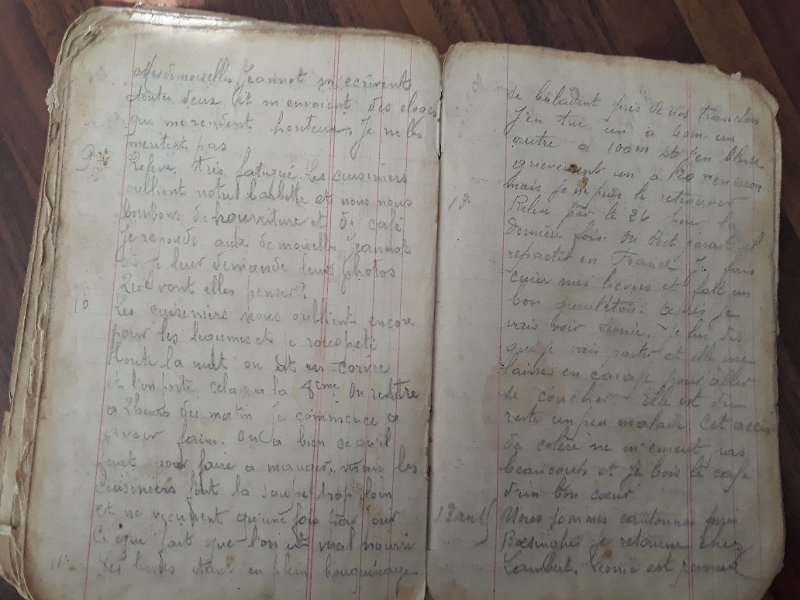 Mesdemoiselles Jeannot m ecrivent
toutes deux et m envoient des eloges
qui me rendent honteux. Je ne les
merite pas
9 Releve. très fatigué. Les cuisiniers
oublient notre barbotte et nous nous
bombons de nourriture et de café
Je reponds aux demoiselles Jeannot
et je leur demande leurs photos
Que vont elles penser?
10 Les cuisiniers nous oublient encore
pour les legumes et je rouspete
Toute la nuit on est en corvée
et l'on porte cela a la 8eme On rentre
a 2 heures du matin Je commence a
avoir faim. On a bien ce qu'il
faut pour faire a manger, mais les
cuisiniers font la soupe trop loin
et ne viennent qu'une fois par jour
Ce qui fait que l'on est mal nourri
11 Les étant en plein bouquinage
se baladent près de nos tranchées
J'en tue un a 40m un
autre a 100m et j'en blesse
grievement un a 120 m environ
mais je ne puis le retrouver
12 Releve par le 26 pour la
dernière fois. On doit parait il
repartir en France Je fais
cuire mes lievres et fait un
bon gueuleton. Apres je
vais voir Leonie. Je lui dis
que je vais partir et elle me
laisse en carafe pour aller
se coucher. Elle est
reste un peu malade Cet accès
de colère ne m'emeut pas
beaucoup et je bois le café
d'un bon cœur
13 aout Nous sommes cantonnés près
Boesinghe je retourne chez
Lambert. Leonie est